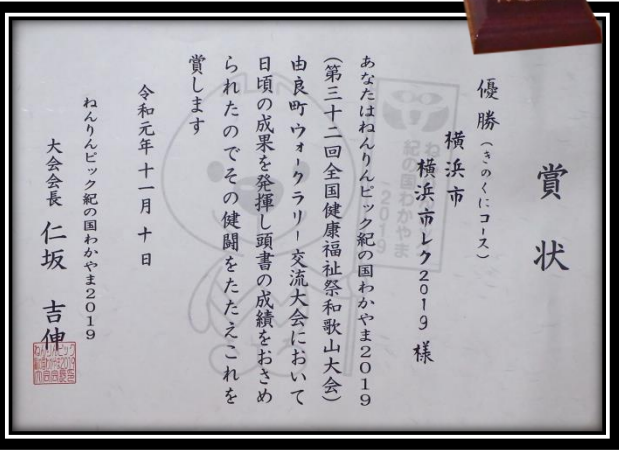 賞状
優勝(きのくにコース)
横浜市
横浜市レク2019 様
あなたはねんりんピック紀の国わかやま2019
(第三十二回全国健康福祉祭和歌山大会)
由良町ウォークラリー交流大会において
日頃の成果を発揮し頭書の成績をおさめ
られたのでその健闘をたたえこれを
賞します
令和元年十一月 十 日
ねんりんピック紀の国わかやま2019
大会会長 仁坂 吉伸